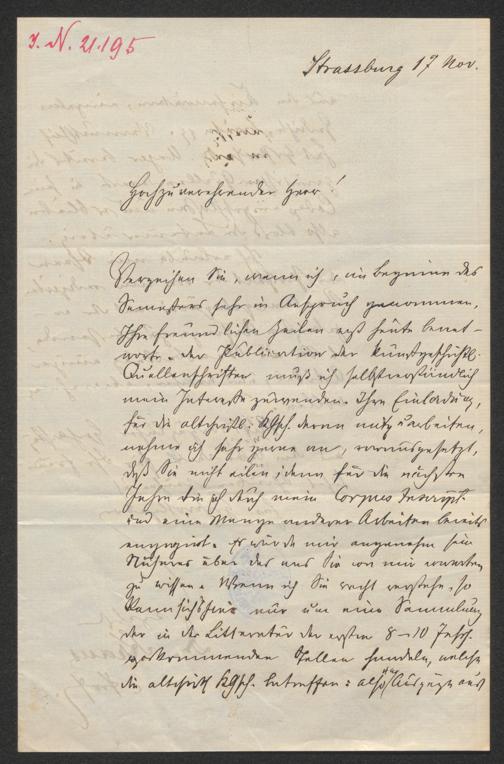 J. N. 21.195
Strassburg 17 Nov.
Hochzuverehrender Herr!
Verzeihen Sie, wenn ich, im Beginne des
Semesters sehr in Anspruch genommen,
Ihre freundlichen Zeilen erst heute beant-
worte. Der Publication der kunstgeschichtl.
Quellenschriften muß ich selbstverständlich
mein Interesse zuwenden. Ihre Einladung,
für die altchristl. KGsch. daran mitzuarbeiten,
nehme ich sehr gerne an, vorausgesetzt,
daß Sie nicht eilen; denn für die nächsten
Jahre bin ich durch mein Corpus Inscript.
und eine Menge anderer Arbeiten bereits
engagirt. Es würde mir angenehm sein
Näheres über das was Sie von mir erwarten
zu wissen. Wenn ich Sie recht verstehe, so
kann sich's nur um eine Sammlung
der in der Litteratur der ersten 8-10 Jahrh.
vorkommenden Stellen handeln, welche
die altchristl. KGsch. betreffen: also Auszüge aus